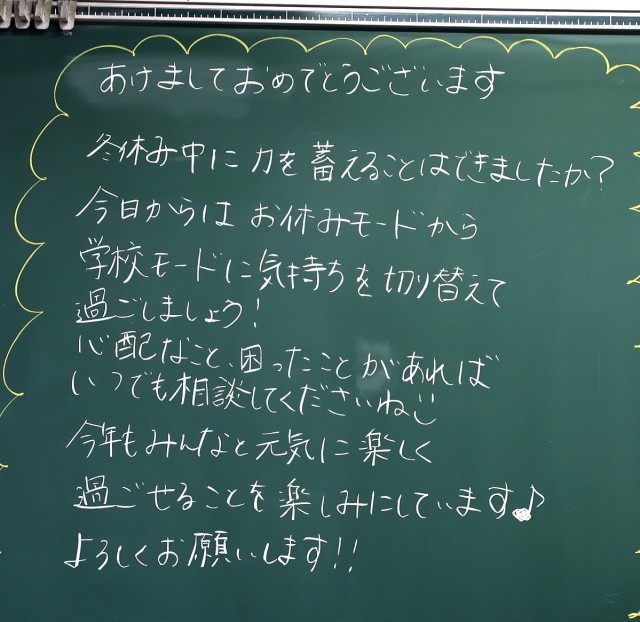 あけましておめでとうございます
冬休み中に力を蓄えることはできましたか?
今日からは お休みモードから
学校モードに気持ちを切り替えて
過ごしましょう!
心配なこと、困ったことがあれば
いつでも相談してくださいね
今年もみんなと元気に楽しく
過ごせることを楽しみにしています♪
よろしくお願いします!!